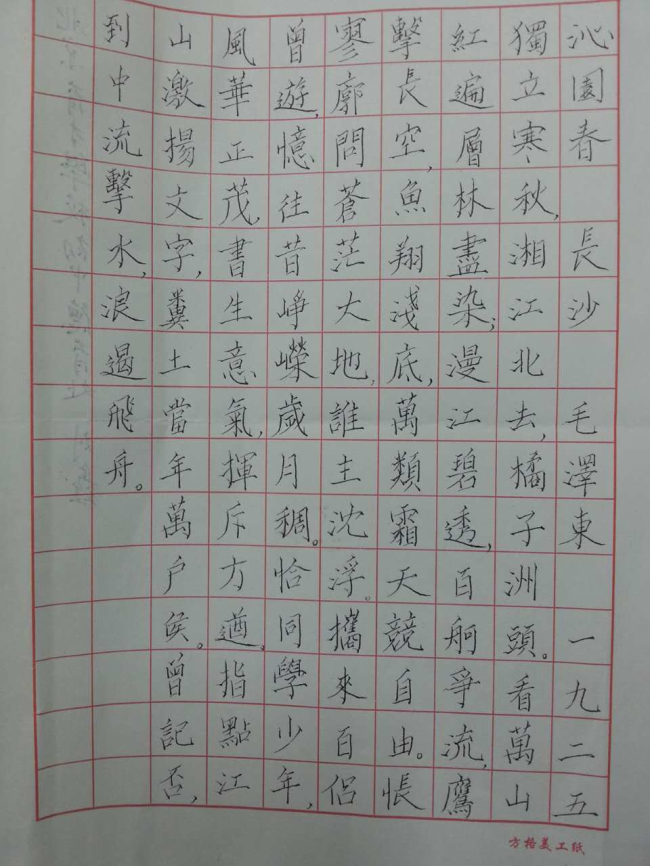 沁園春 長沙 毛澤東 一九二五
獨立寒秋,湘江北去,橘子洲頭。看萬山
紅遍層林盡染;漫江碧透,百舸爭流,鷹
擊長空,魚翔淺底,萬類霜天競自由。悵
寥廓問蒼茫大地,誰主沈浮。攜來百侶
曾遊,憶往昔崢嶸歲月稠。恰同學少年,
風華正茂,書生意氣,揮斥方遒。指點江
山激揚文字,糞土當年萬户侯。曾記否,
到中流擊水,浪遏飛舟。
方格美工紙